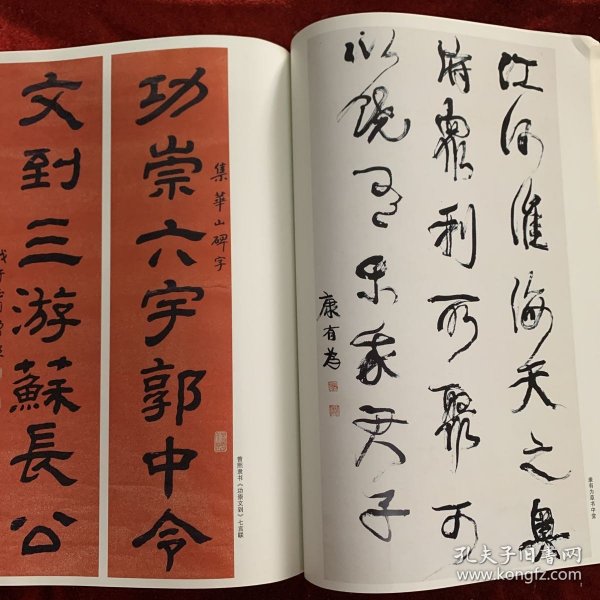 江河淮海天之奥
府眾利所聚可
以饒有樂我君子
康有為
康有为草书中堂
集華山碑字
功崇六宇郭中令
文到三游蘇長公
曾熙隶书《功崇文到》七言联
孔夫子旧书网
www.kongfz.com